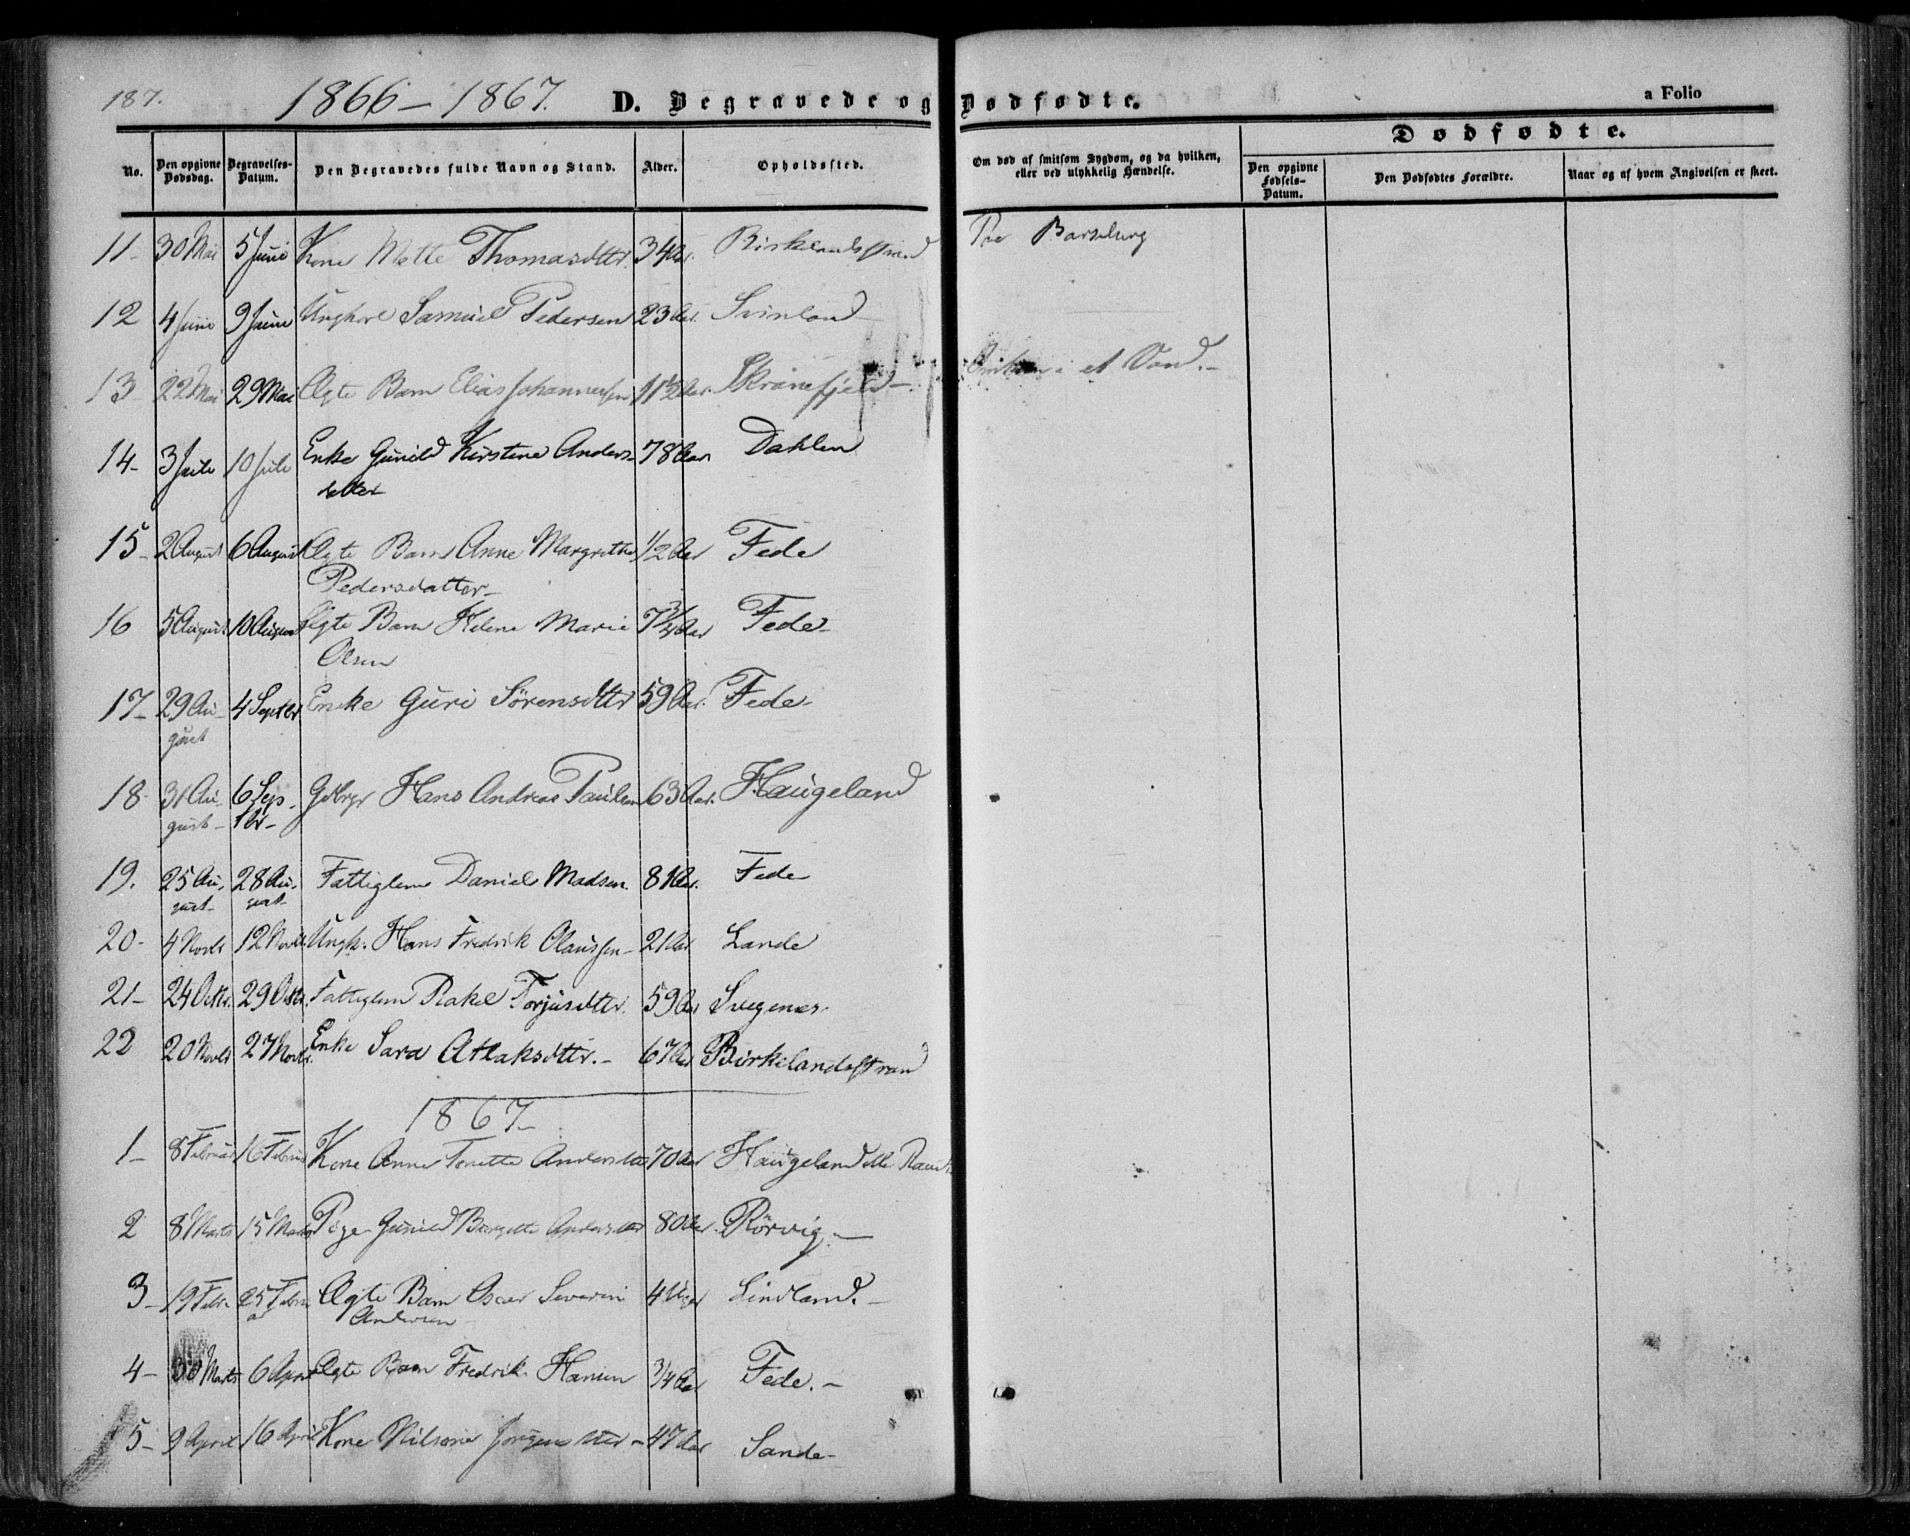 187. 1866 - 1867. D. Begravede og Dødfødte. a Folio
Dødfødte.
No. Den opgivne Dødsdag. Begravelses-Datum. Den Begravedes fulde Navn og Stand. Alder. Opholdssted. Om død af smitsom Sygdom, og da hvilken, eller ved ulykkelig Hændelse. Den opgivne Fødsels-Datum. Den Dødfødtes Forældre. Naar og af hvem Angivelsen er skeet.
11- 30 Mai 5 Juni Kone Mette Thomasdttr. 34 Aar. Birkelandsstrand Paa Barselseng
12 4 Juni 9 Juni Ungkarl Samuel Pedersen 23 Aar. Svinland
13 22 Mai 29 Mai Ægte Barn Elias Johannessen 11½ Aar. Skranefjeld- i et Vand.-
14- 3 Juli 10 Juli Enke Gunild Kirstine Anders- 78 Aar Dahlen
datter
15- 2 August 6 August Ægte Barn Anne Margrethe 1/2 Aar Fede
Pedersdatter-
16 5 August 10 August Ægte Barn Helene Marie 7¾ Aar Fede-
Olsen
17- 29 Au- 4 Septbr Enke Guri Sörensdttr 59 Aar. Fede-
gust
18- 31 Au- 6 Sep- Gdbrgr Hans Andreas Paulsen 63 Aar. Haugeland
gust- tbr-
19. 25 Au- 28 Au- Fattiglem Daniel Madsen. 81 Aar. Fede
gust- gust-
20- 4 Novbr 12 Novbr Ungk. Hans Fredrik Claussen- 21 Aar Lande
21- 24 Octbr. 29 Octbr. Fattiglem Rakel Torjusdttr. 59 Aar
22 20 Novbr 27 Novbr. Enke Sara Atlaksdttr.- 67 Aar Birkelandsstran
1867-
1- 8 Februar 16 Februar Kone Anne Tonette Andersdttr 70 Aar Haugeland
2 8 Marts 15 Marts Pige Gunild Bergitte Andersdttr 80 Aar. Rörvig.-
3- 19 Febr 25 Febru Ægte Barn Oscar Severin 4 Uger Lindland.-
ar Andersen
4- 30 Marts 6 April Ægte Barn Fredrik Hansen 3/4 Aar Fede.-
5- 9 April 16 April Kone Nilsine Jørgensdttr- 47 Aar Sande-